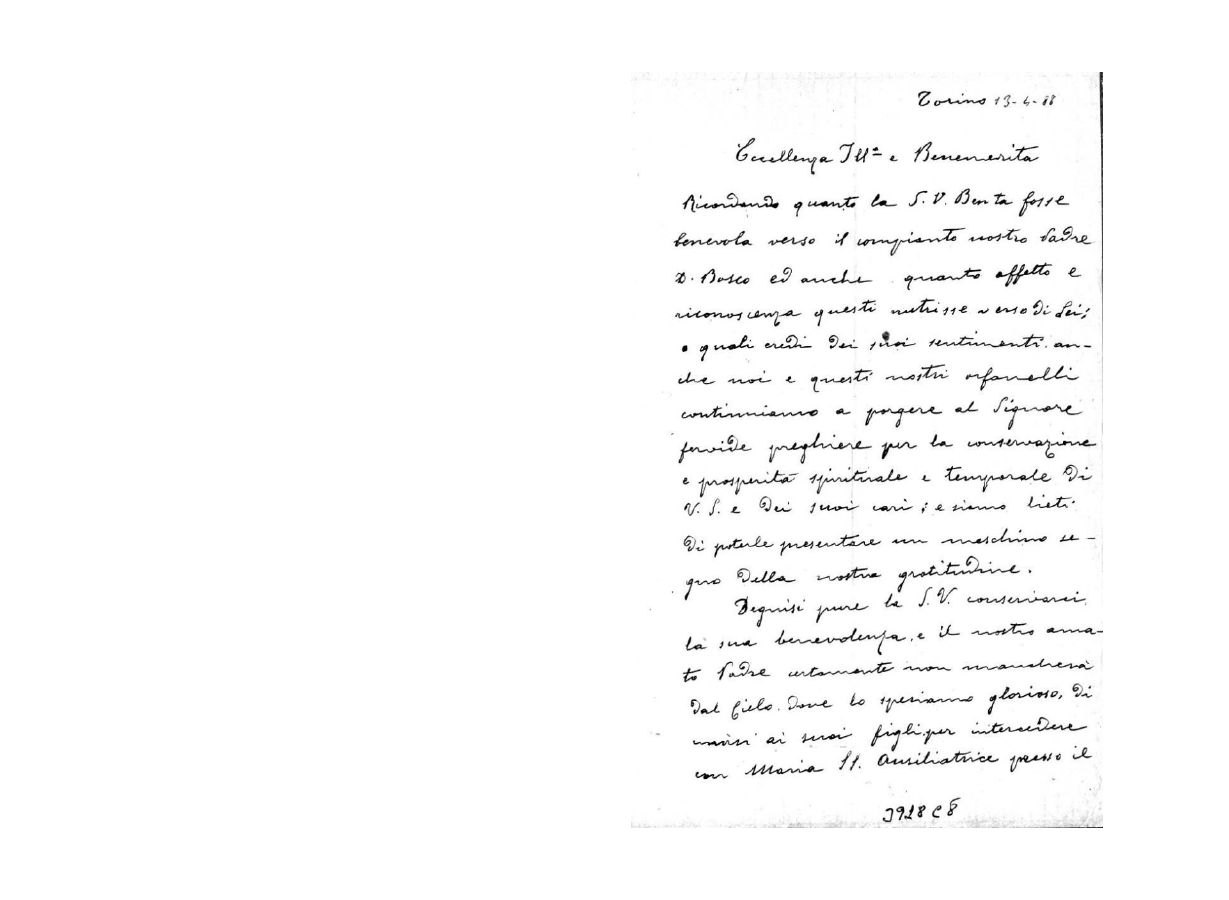 Torino 13-4-88
Eccellenza Ill.ª e Benemerita
Ricordando quanto la S. V. Benta fosse
benevola verso il compianto nostro Padre
D. Bosco ed anche quanto affetto e
riconoscenza questi nutrisse verso di Lei;
e quali eredi dei suoi sentimenti an-
che noi e questi nostri orfanelli
continuiamo a porgere al Signore
fervide preghiere per la conservazione
e prosperità spirituale e temporale di
V. S. e dei suoi cari; e siamo lieti
di poterle presentare un meschino se-
gno della nostra gratitudine.
Degnisi pure la S. V. conservarci
la sua benevolenza, e il nostro ama-
to Padre certamente non mancherà
dal Cielo dove lo speriamo glorioso, di
unirsi ai suoi figli per intercedere
con Maria SS. Ausiliatrice presso il